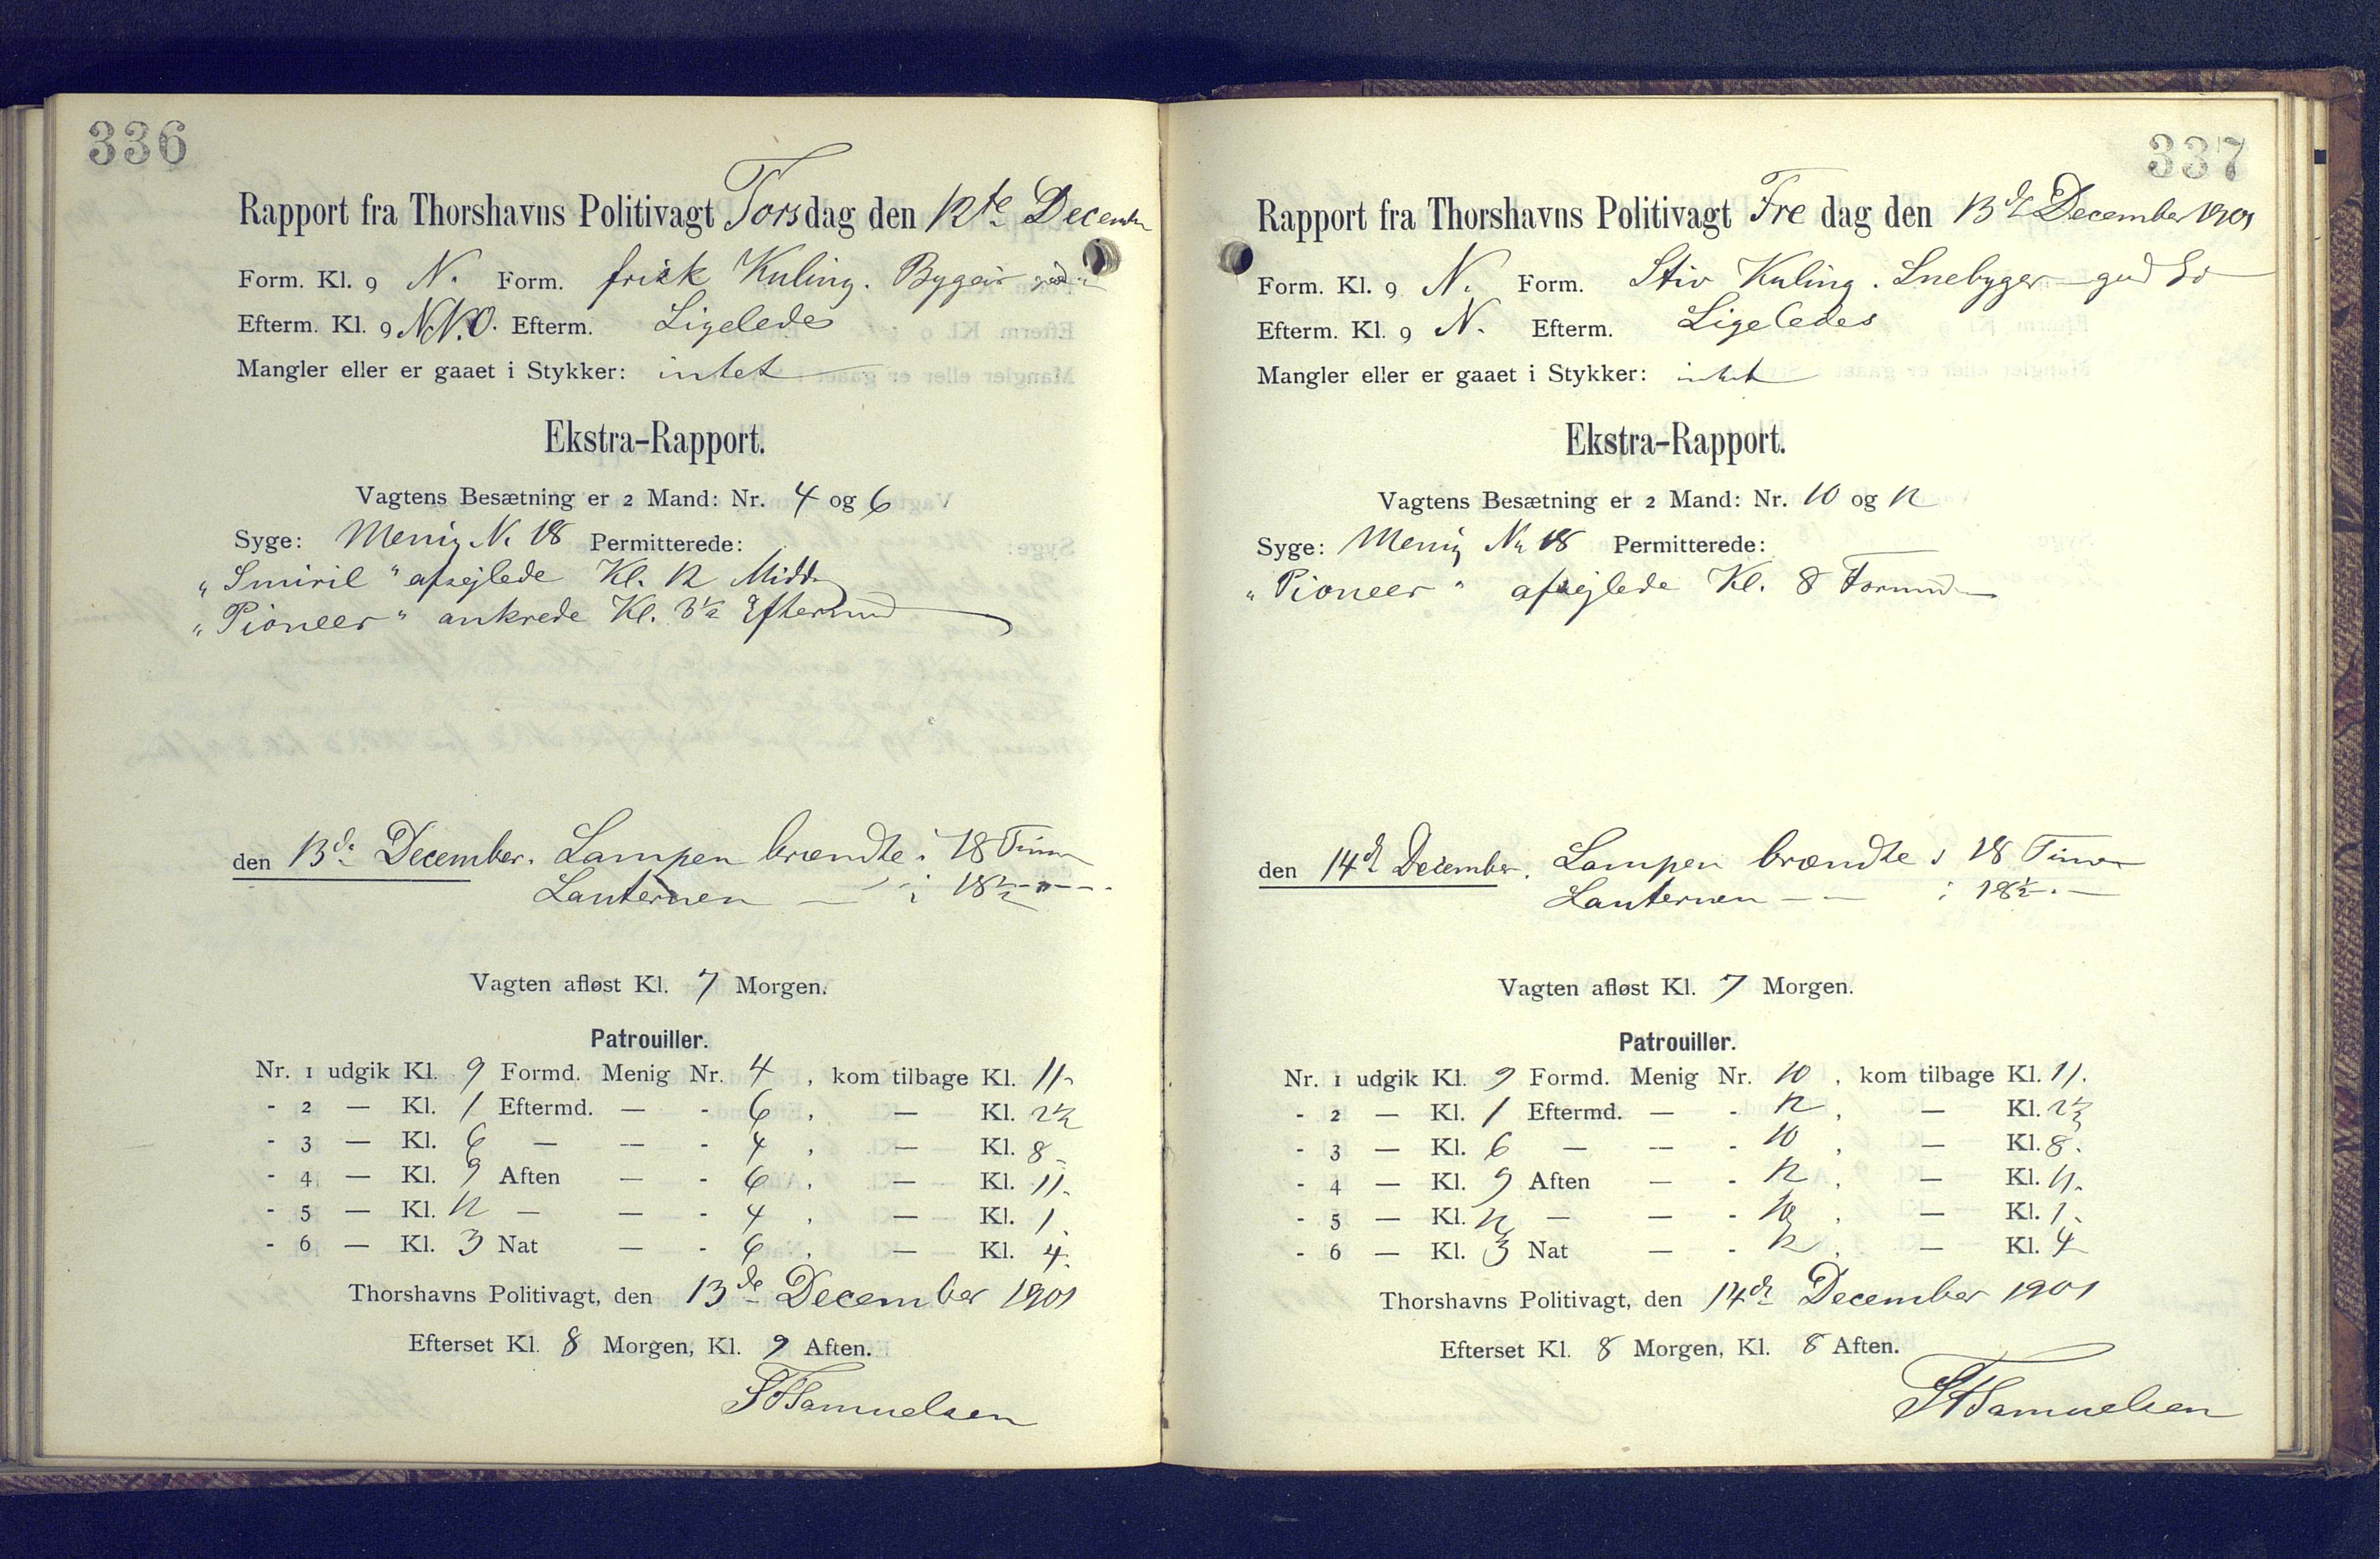 336
Rapport fra Thorshavns Politivagt Torsdag den 12te Decembr
Form. Kl. 9 N. Form. frisk Kuling. Bygeir
Efterm. Kl. 9 NN.O. Efterm. Ligeledes
Mangler eller er gaaet i Stykker: intet
Ekstra-Rapport.
Vagtens Besætning er 2 Mand: Nr. 4 og 6
Syge: Menig N. 18 Permitterede:
„Smiril" afsejlede Kl. 12 Midd
„Pioneer" ankrede Kl. 3½ Eftermd
den 13de December. Lampen brændte i 18 Timer
Lanternen — i 18½ — " —
Vagten afløst Kl. 7 Morgen.
Patrouiller.
Nr. 1 udgik Kl. 9 Formd. Menig Nr. 4, kom tilbage Kl. 11.
- 2 — Kl. 1 Eftermd. — - 6, — Kl. 2½
- 3 — Kl. 6 — — - 4, — Kl. 8
- 4 — Kl. 9 Aften — - 6, — Kl. 11.
- 5 — Kl. 12 — — - 4, — Kl. 1
- 6 — Kl. 3 Nat — - 6, — Kl. 4.
Thorshavns Politivagt, den 13de December 1901
Efterset Kl. 8 Morgen, Kl. 9 Aften.
Samuelsen
337
Rapport fra Thorshavns Politivagt Fredag den 13de December 1901
Form. Kl. 9 N. Form. Stiv Kuling. Snebyger
Efterm. Kl. 9 N. Efterm. Ligeledes
Mangler eller er gaaet i Stykker: intet
Ekstra-Rapport.
Vagtens Besætning er 2 Mand: Nr. 10 og 12
Syge: Menig Nr 18 Permitterede:
„Pioneer" afsejlede Kl. 8 Formd
den 14de December. Lampen brændte i 18 Timer
Lanternen — — i 18½ — . —
Vagten afløst Kl. 7 Morgen.
Patrouiller.
Nr. 1 udgik Kl. 9 Formd. Menig Nr. 10, kom tilbage Kl. 11.
- 2 — Kl. 1 Eftermd. — - 12, — Kl. 2½
- 3 — Kl. 6 — — - 10, — Kl. 8.
- 4 — Kl. 9 Aften — - 12, — Kl. 11.
- 5 — Kl. 12 — — - 10, — Kl. 1.
- 6 — Kl. 3 Nat — - 12, — Kl. 4
Thorshavns Politivagt, den 14de December 1901
Efterset Kl. 8 Morgen, Kl. 8 Aften.
Samuelsen